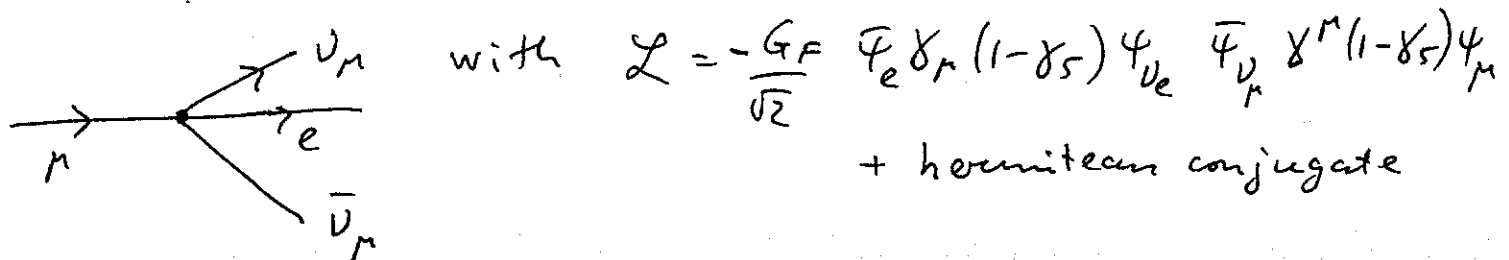 ν_μ
with ℒ = -G_F/√2 ψ̄_e γ_μ (1-γ_5) ψ_{ν_e} ψ̄_{ν_μ} γ^μ (1-γ_5) ψ_μ
e
μ
+ hermitean conjugate
ν̄_μ